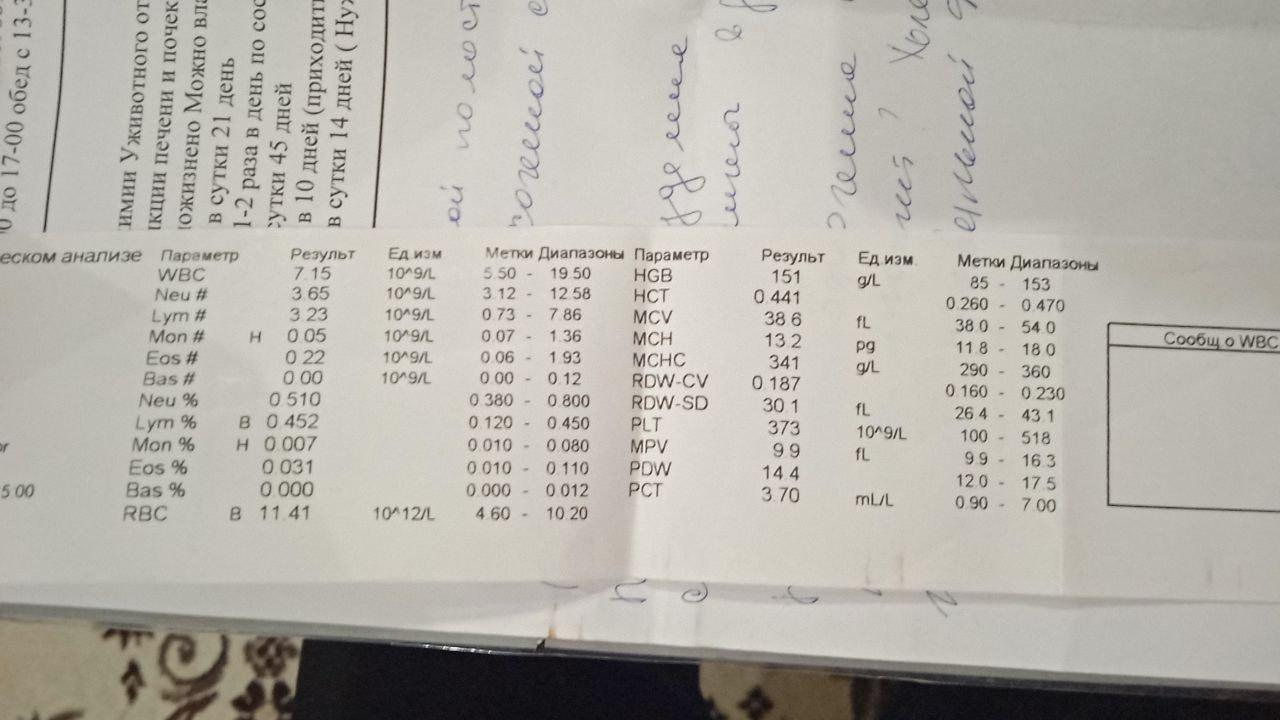 0 до 17-00 обед с 13-3
имии Уживотного от
кции печени и почек
ожизнено Можно вла
в сутки 21 день
1-2 раза в день по сос
сутки 45 дней
в 10 дней (приходить
в сутки 14 дней ( Нуж
ческом анализе Параметр Результ Ед.изм Метки Диапазоны Параметр Результ Ед.изм. Метки Диапазоны
WBC 7.15 10^9/L 5.50 - 19.50 HGB 151 g/L 85 - 153
Neu # 3.65 10^9/L 3.12 - 12.58 HCT 0.441 0.260 - 0.470
Lym # 3.23 10^9/L 0.73 - 7.86 MCV 38.6 fL 38.0 - 54.0
Mon # Н 0.05 10^9/L 0.07 - 1.36 MCH 13.2 pg 11.8 - 18.0
Eos # 0.22 10^9/L 0.06 - 1.93 MCHC 341 g/L 290 - 360
Bas # 0.00 10^9/L 0.00 - 0.12 RDW-CV 0.187 0.160 - 0.230
Neu % 0.510 0.380 - 0.800 RDW-SD 30.1 fL 26.4 - 43.1
Lym % В 0.452 0.120 - 0.450 PLT 373 10^9/L 100 - 518
Mon % Н 0.007 0.010 - 0.080 MPV 9.9 fL 9.9 - 16.3
Eos % 0.031 0.010 - 0.110 PDW 14.4 12.0 - 17.5
5:00 Bas % 0.000 0.000 - 0.012 PCT 3.70 mL/L 0.90 - 7.00
RBC В 11.41 10^12/L 4.60 - 10.20
Сообщ о WBC